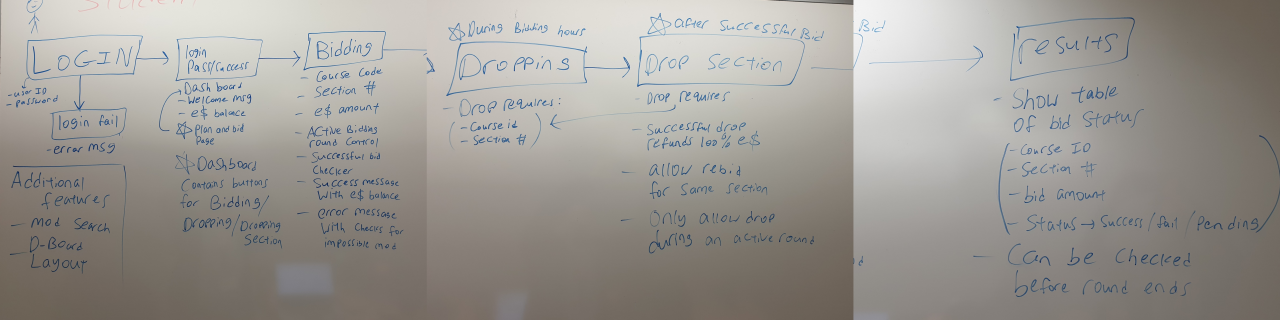 LOGIN
- user ID
- password
login fail
- error msg
Additional
features
- mod search
- D-Board
Layout
login
Pass/success
Dash board
- Welcome msg
- e$ balance
Plan and bid
Page
Dashboard
Contains buttons
for Bidding/
Dropping/Dropping
Section
Bidding
- Course Code
- Section #
- e$ amount
- Active Bidding
round Control
- Successful bid
Checker
- Success message
With e$ balance
- error message
With checks for
impossible mod
During Bidding hours
Dropping
- Drop requires:
- Course id
- Section #
after successful Bid
Drop Section
- Drop requires
- Successful drop
refunds 100% e$
- allow rebid
for same section
- Only allow drop
during an active round
Bid
results
- Show table
Of bid Status
- Course ID
- Section #
- bid amount
- Status → Success/fail/Pending
- Can be Checked
before round ends